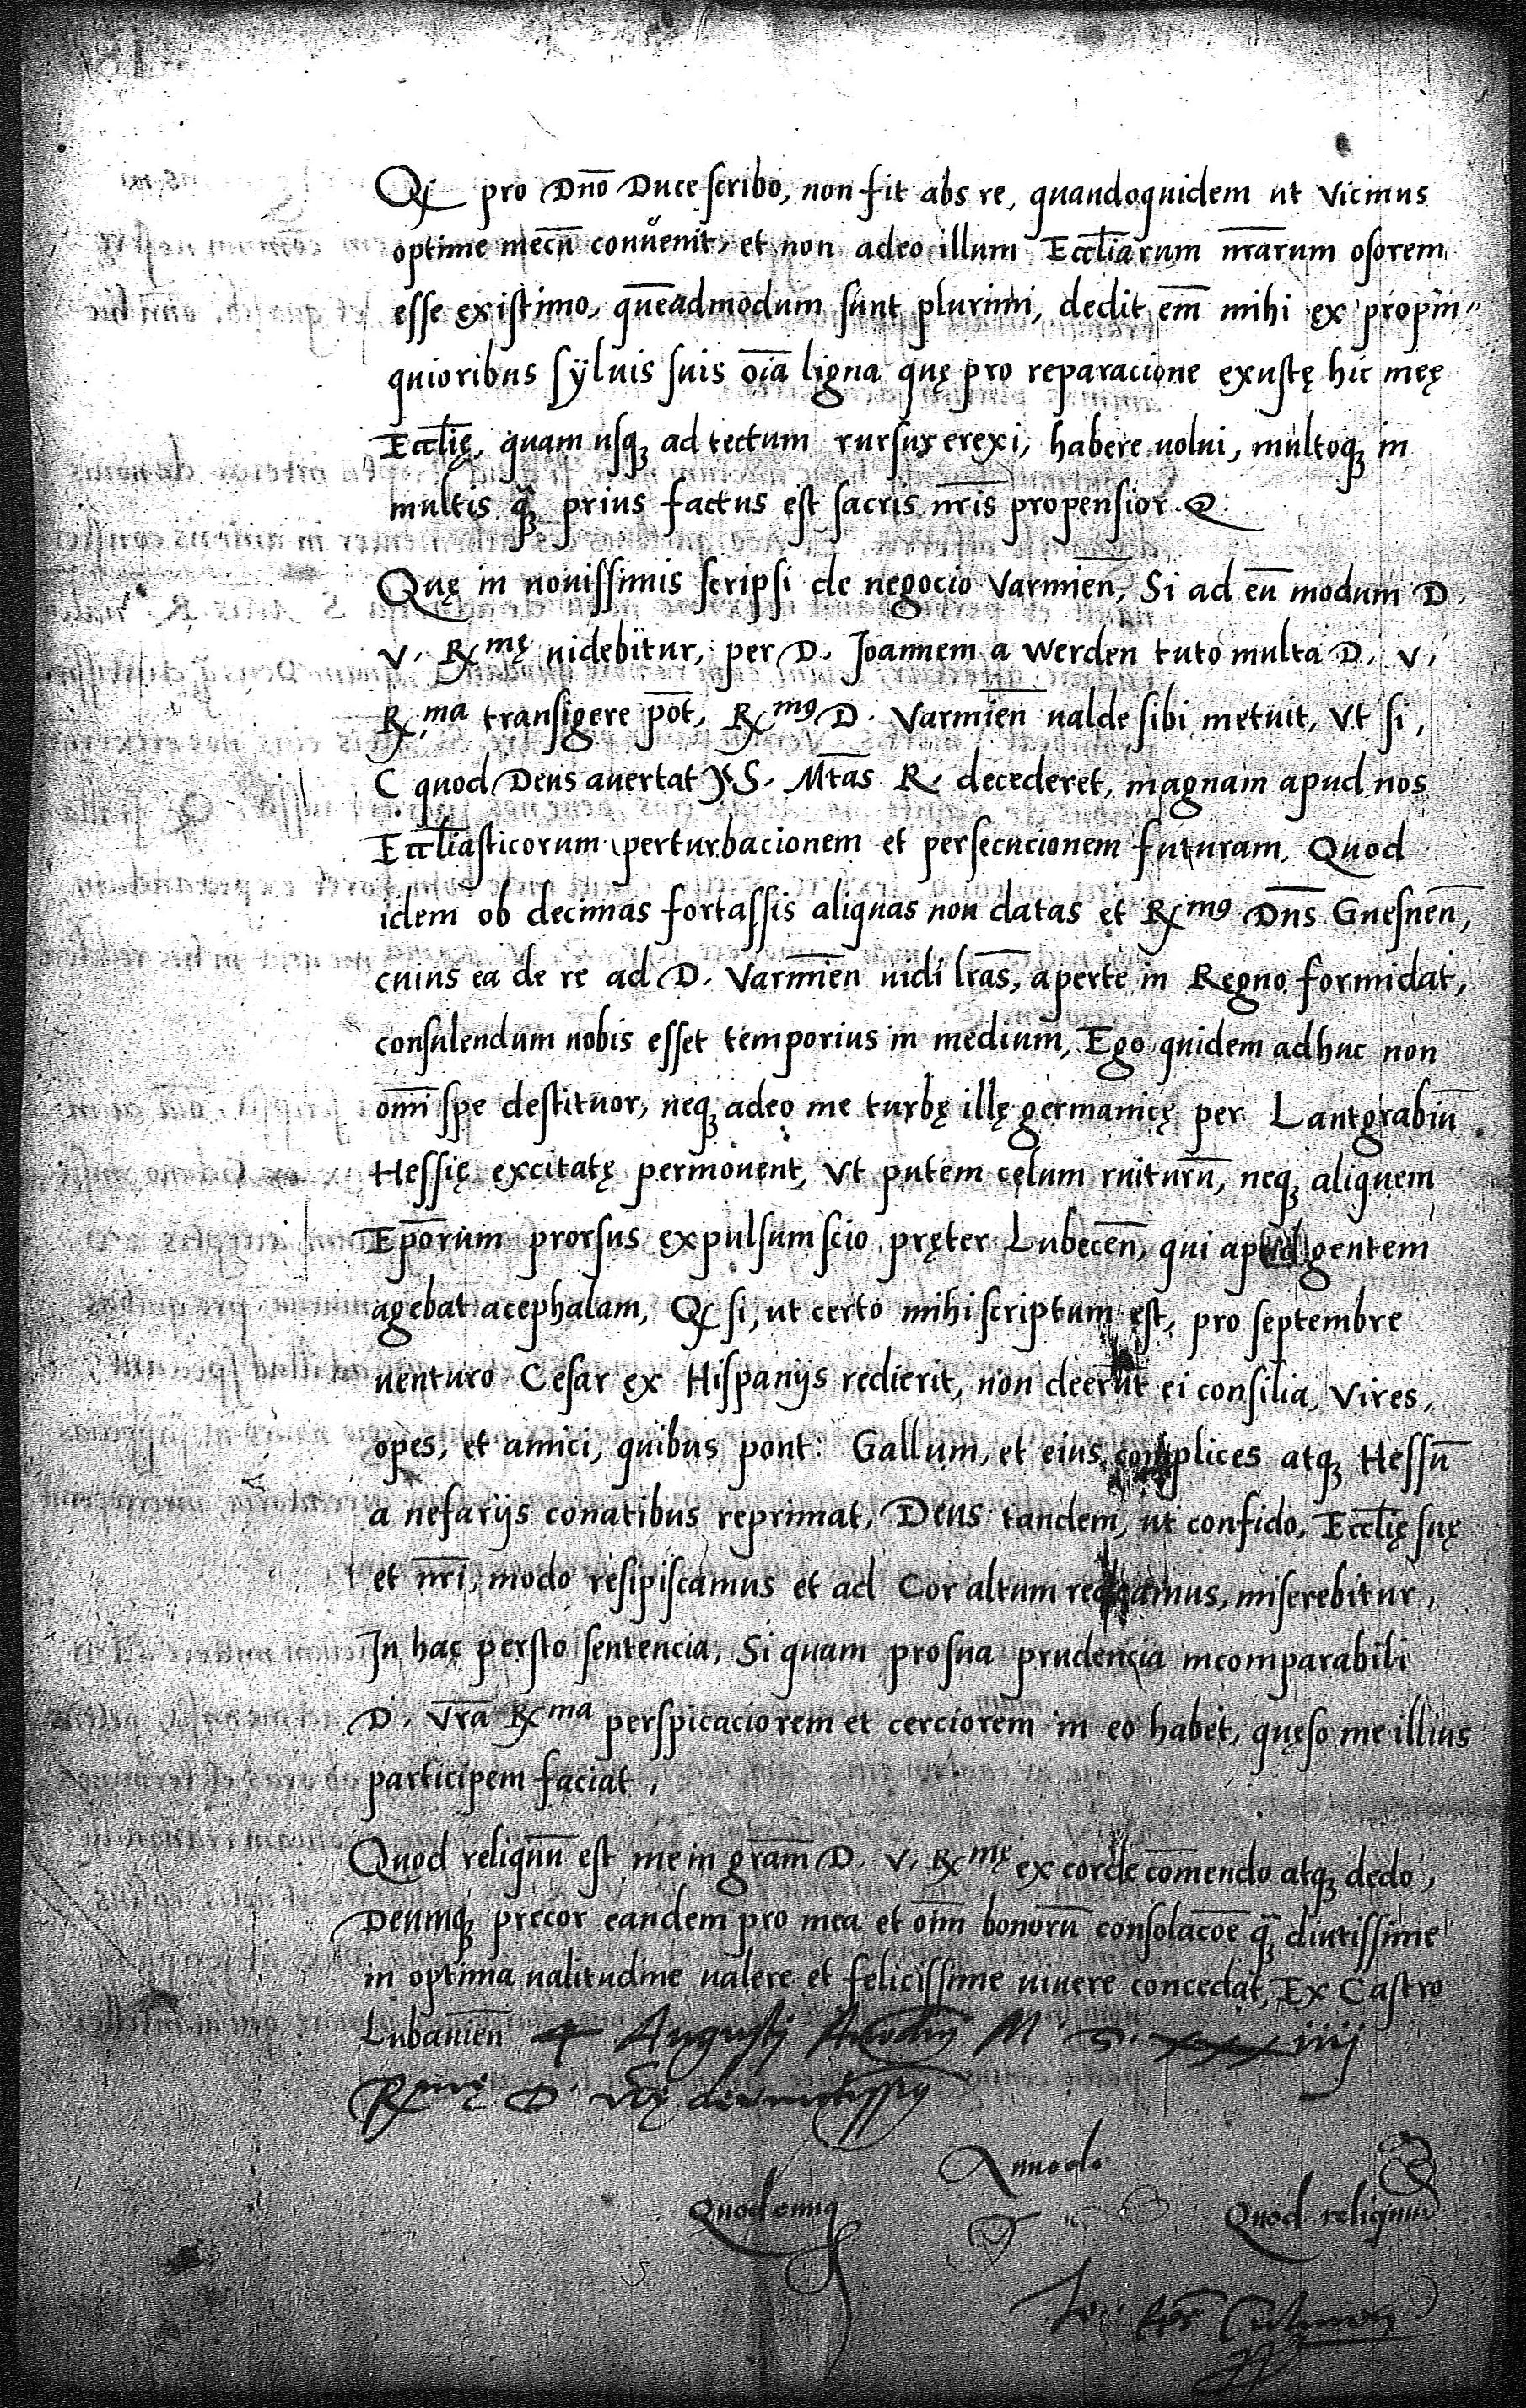 Qͻ pro Dn̄o Duce scribo, non fit abs re, quandoquidem ut vicinus
optime mecū conŭenit, et non adeo illum Eccl̄iarum nr̄arum osorem
esse existimo, quē̄admodum sunt plurimi, dedit em̄ mihi ex propin〃
quioribus sÿluis suis oīa ligna quę pro reparacione exustę hic meę
Eccl̄ię, quam usqꝫ ad tectum rursus erexi, habere uolui, multoqꝫ in
multis qꝫ̄ prius factus est sacris nr̄is propensior.
Quę in nouissimis scripsi de negocio Varmien̄, Si ad eū modum D.
V. Rͫᵉ uidebitur, per D. Joannem a Werden tuto multa D. V.
Rᵐᵃ transigere pōt, Rᵐ⁹ D. Varmien̄ ualde sibi metuit, Vt si,
( quod Deus auertat ) S. Mt̄as R. decederet, magnam apud nos
Eccl̄iasticorum perturbacionem et persecucionem futuram, Quod
idem ob decimas fortassis aliquas non datas et Rᵐ⁹ Dn̄s Gnesnen̄,
cuius ea de re ad D. Varmien̄ uidi lr̄as, aperte in Regno formidat,
consulendum nobis esset temporius in medium, Ego quidem adhuc non
om̄i spe destituor, neqꝫ adeo me turbę illę germanicę per Lantgrabiū
Hessię excitatę permouent, Vt putem cęlum ruiturū, neqꝫ aliquem
Ep̄orum prorsus expulsum scio pręter Lubecen̄, qui apud gentem
agebat acephalam, Qͻ si, ut certo mihi scriptum est, pro septembre
uenturo Cesar ex Hispanijs redierit, non deerūt ei consilia, Vires,
opes, et amici, quibus pont: Gallum, et eius complices atqꝫ Hessū
a nefarijs conatibus reprimat, Deus tandem, ut confido, Eccl̄ię suę
et nr̄i, modo resipiscamus et ad Cor altum redeamus, miserebitur,
In hac persto sentencia, Si quam pro sua prudencia incomparabili
D. Vr̄a Rᵐᵃ perspicaciorem et cerciorem in eo habet, quęso me illius
participem faciat,
Quod reliquū est me in gr̄am D. V. Rᵐę ex corde com̄endo atqꝫ dedo,
Deumqꝫ precor eandem pro mea et oīm bonorū consolacōe qꝫ̄ diutissime
in optima ualitudine ualere et felicissime uiuere concedat, Ex Castro
Lubauien̄ 4 Augusti Anno dn̄i M D XXXiiij
Rᵐę D. Vr̄ę deditissimus
Anno do
Quodcunqꝫ Quod reliquum
Jo. Ep̄s Culmen̄